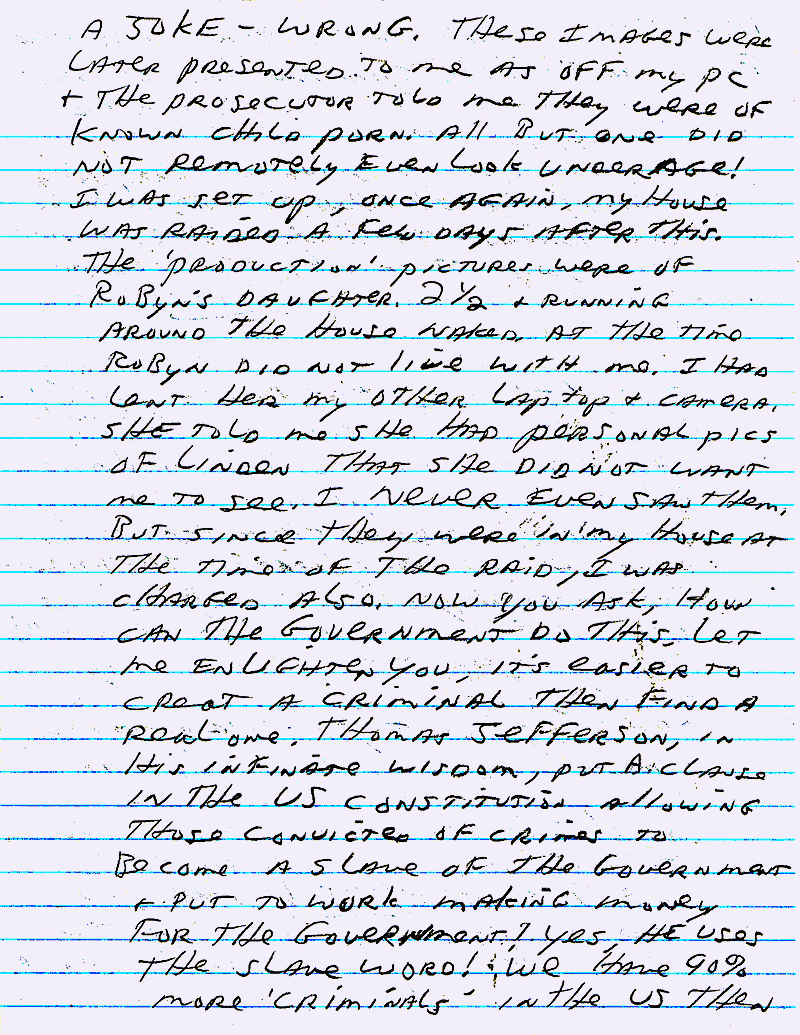 A JOKE - WRONG. THESE IMAGES WERE
LATER PRESENTED TO ME AS OFF MY PC
+ THE PROSECUTOR TOLD ME THEY WERE OF
KNOWN CHILD PORN. ALL BUT ONE DID
NOT REMOTELY EVEN LOOK UNDERAGE!
I WAS SET UP, ONCE AGAIN, MY HOUSE
WAS RAIDED A FEW DAYS AFTER THIS.
THE 'PRODUCTION' PICTURES WERE OF
ROBYN'S DAUGHTER. 2 1/2 + RUNNING
AROUND THE HOUSE NAKED. AT THE TIME
ROBYN DID NOT LIVE WITH ME. I HAD
LENT HER MY OTHER LAPTOP + CAMERA.
SHE TOLD ME SHE HAD PERSONAL PICS
OF LINDEN THAT SHE DID NOT WANT
ME TO SEE. I NEVER EVEN SAW THEM,
BUT SINCE THEY WERE 'IN' MY HOUSE AT
THE TIME OF THE RAID, I WAS
CHARGED ALSO. NOW YOU ASK, HOW
CAN THE GOVERNMENT DO THIS. LET
ME ENLIGHTEN YOU, IT'S EASIER TO
CREAT A CRIMINAL THEN FIND A
REAL ONE. THOMAS JEFFERSON, IN
HIS INFINATE WISDOM, PUT A CLAUSE
IN THE US CONSTITUTION ALLOWING
THOSE CONVICTED OF CRIMES TO
BECOME A SLAVE OF THE GOVERNMENT
+ PUT TO WORK MAKING MONEY
FOR THE GOVERNMENT! YES, HE USES
THE SLAVE WORD! WE HAVE 90%
MORE 'CRIMINALS' IN THE US THEN